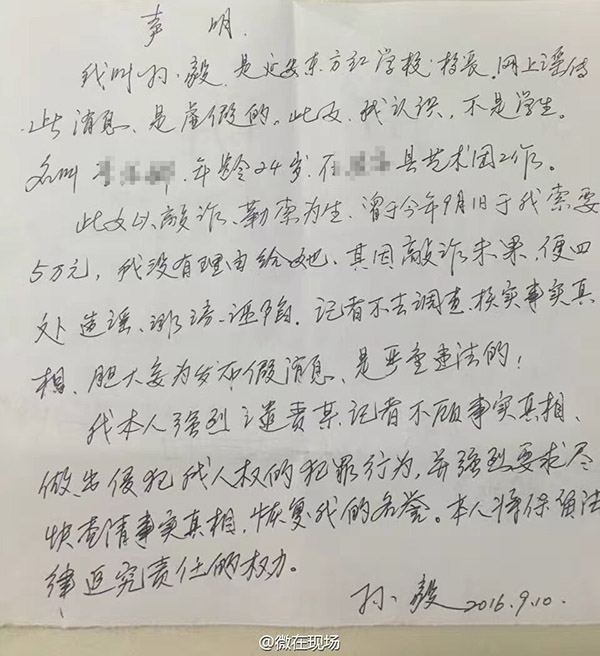 声 明
我叫孙毅,是延安东方红学校校长,网上谣传
此消息是虚假的。此女我认识,不是学生。
名叫 年龄24岁,在 县艺术团工作。
此女以敲诈、勒索为生,曾于今年9月1日于我索要
5万元,我没有理由给她,其因敲诈未果,便四
处造谣、诽谤、诬陷。记者不去调查、核实事实真
相,胆大妄为发布假消息,是严重违法的!
我本人强烈谴责某记者不顾事实真相、
做出侵犯我人权的犯罪行为,并强烈要求尽
快查清事实真相,恢复我的名誉。本人将保留法
律追究责任的权力。
孙毅 2016.9.10.
@微在现场